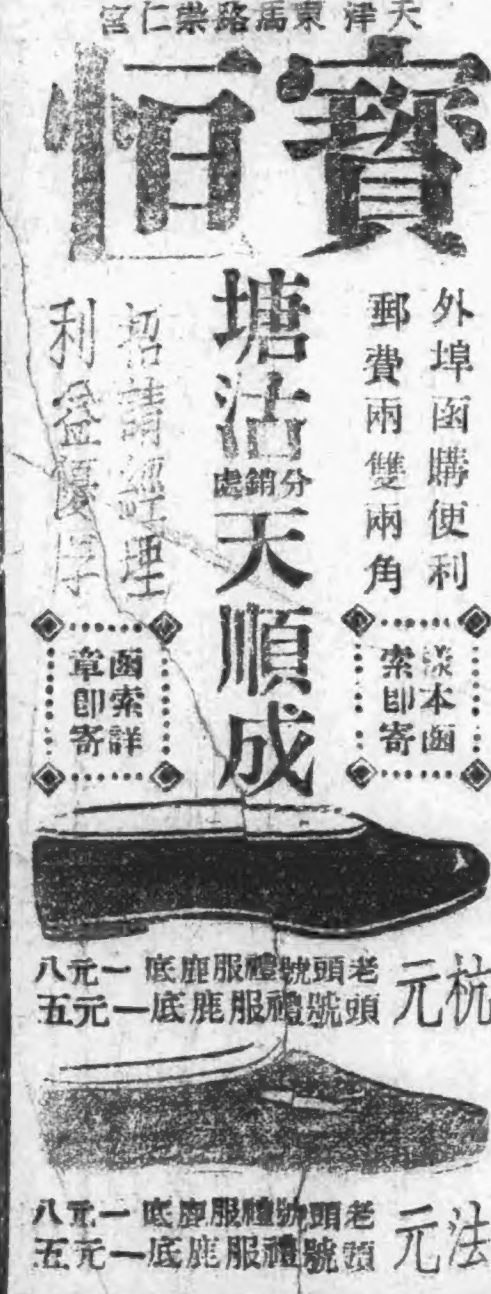 天津東馬路崇仁宮
寶恒
外埠函購便利
郵費兩雙兩角
樣本函
索卽寄
塘沽
分銷處
天順成
招請經理
利益優厚
函索詳
章卽寄
杭元
老頭號禮服鹿底一元八
頭號禮服鹿底一元五
法元
老頭號禮服鹿底一元八
頭號禮服鹿底一元五